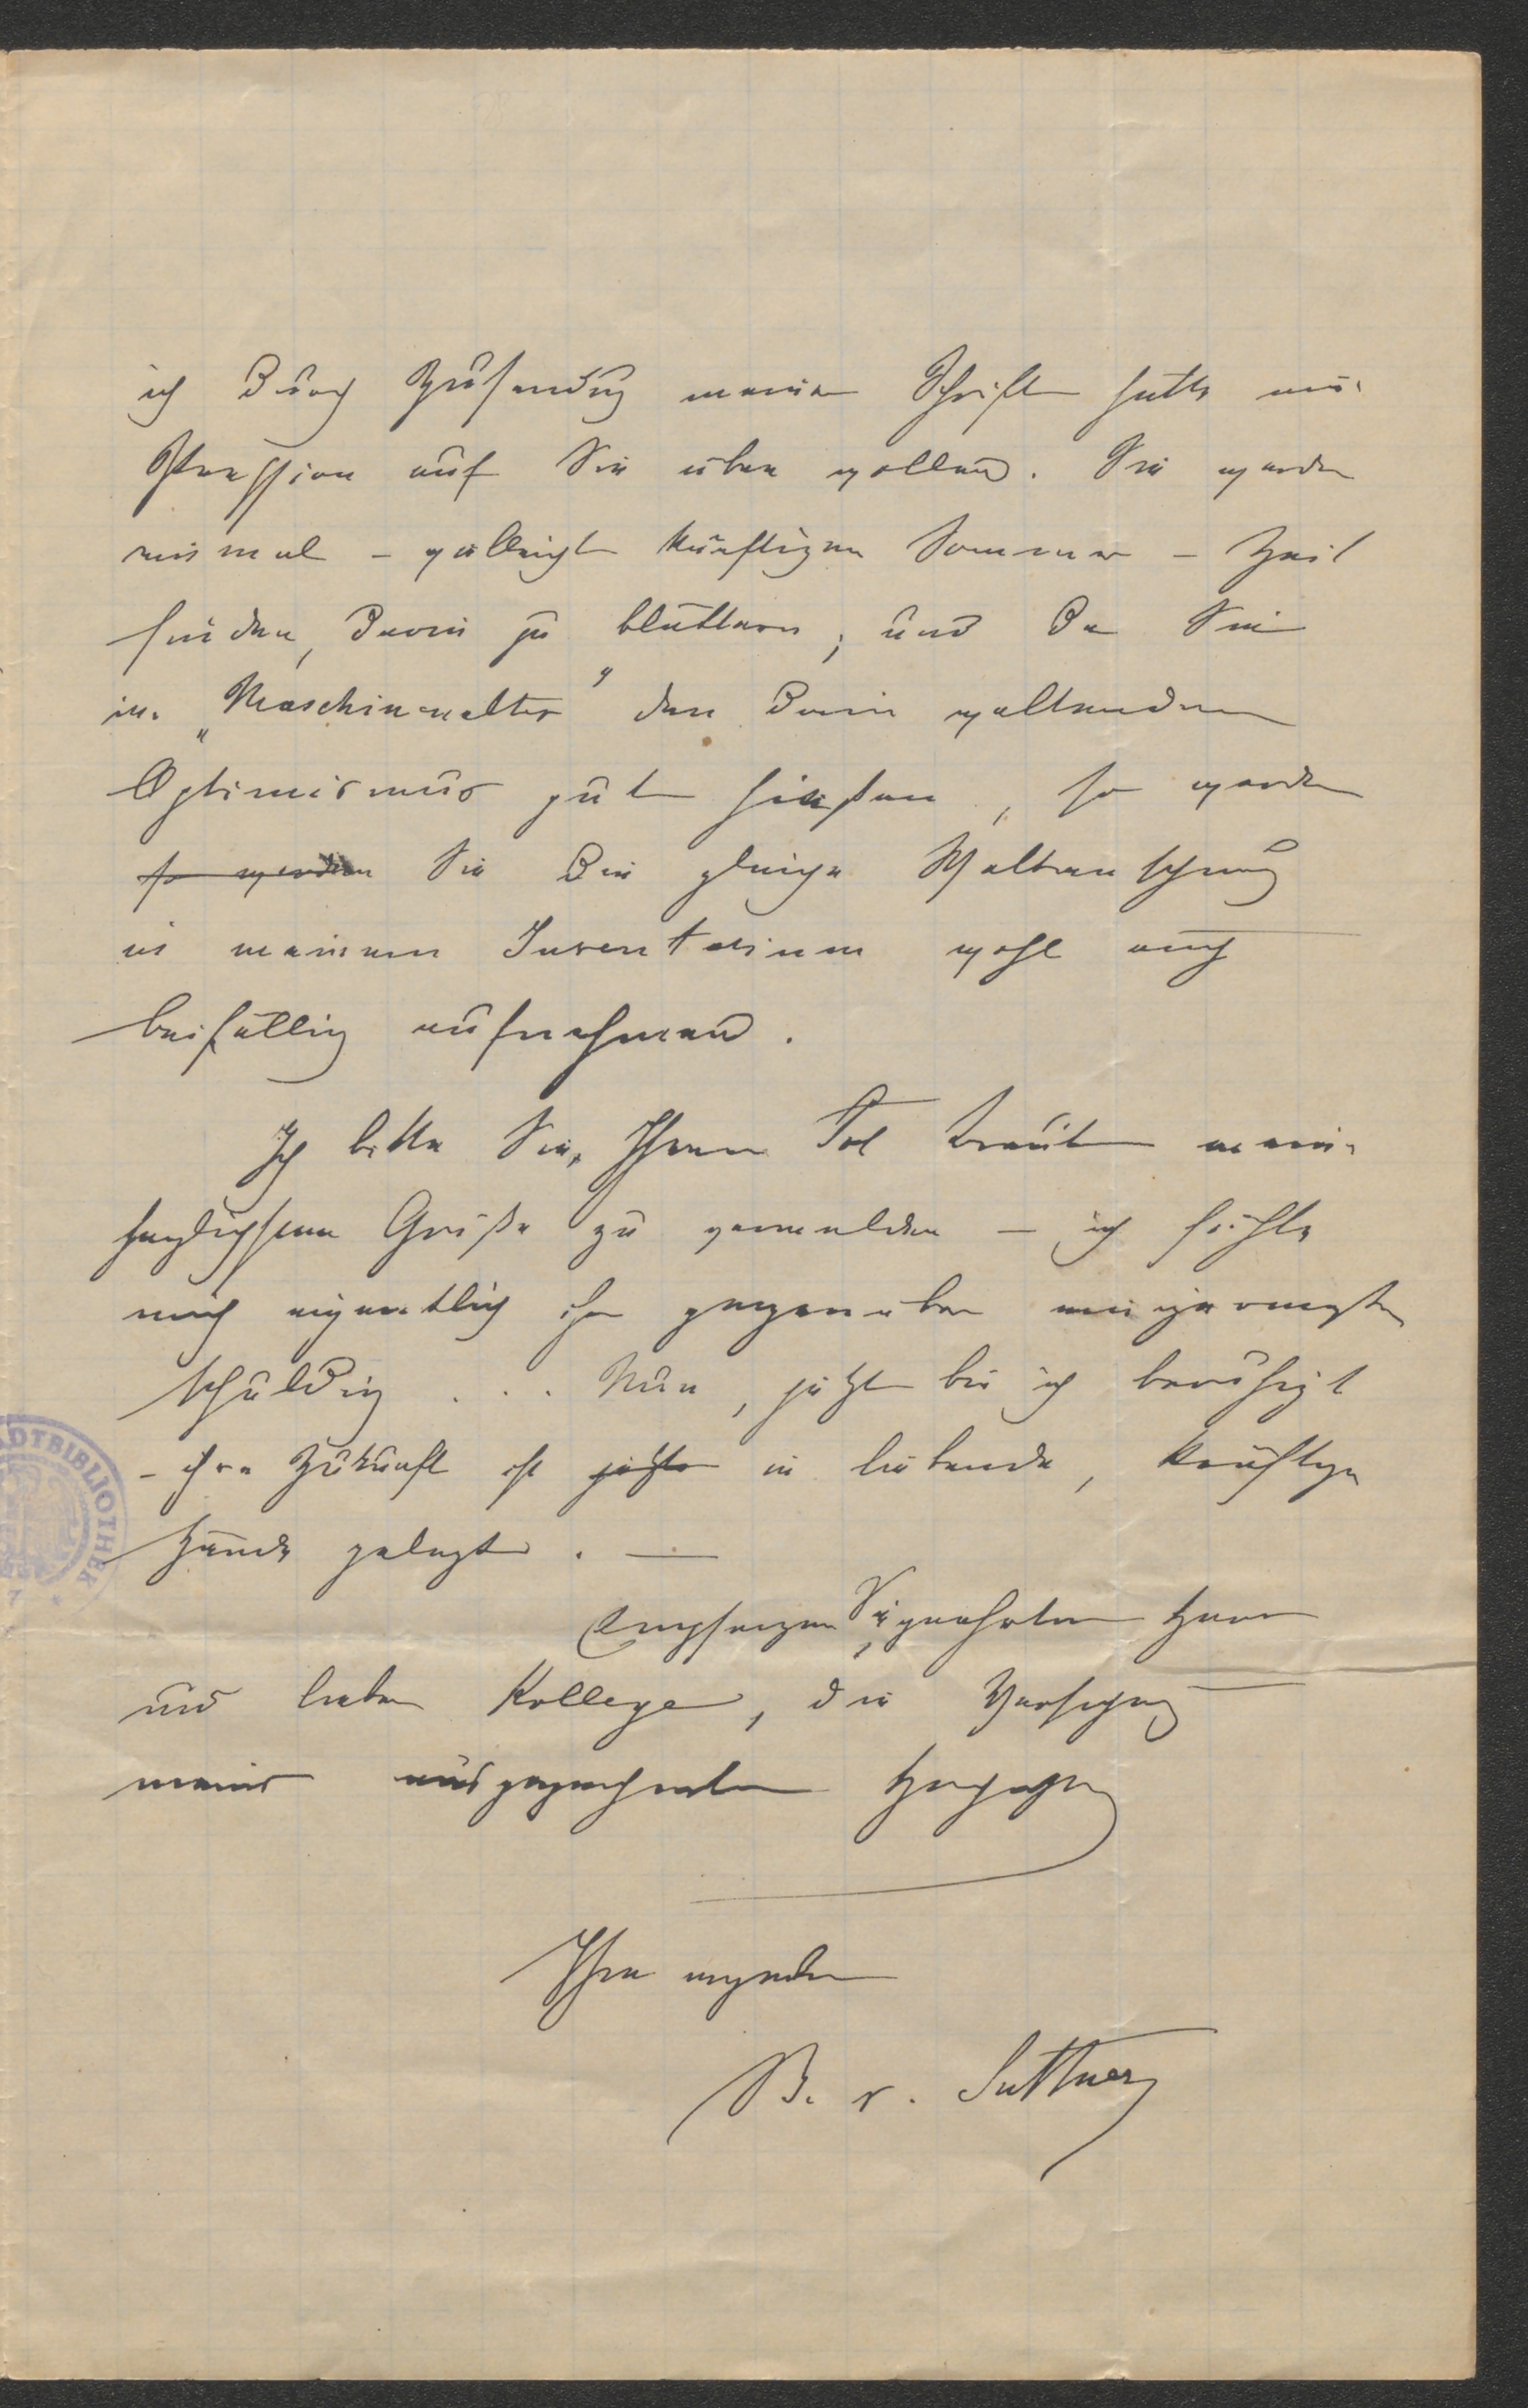 ich durch Zusendung meiner Schriften hätte eine
Pression auf Sie üben wollen. Sie werden
einmal – vielleicht künftigen Sommer – Zeit
finden, darin zu blättern; und da Sie
im „Maschinenalter" den darin waltenden
Optimismus gut hießen, so werden
so werden Sie die gleiche Weltanschauung
in meinem Inventarium wohl auch
beifällig aufnehmen.
Ich bitte Sie, Ihrer Frl Braut meine
herzlichsten Grüße zu vermelden – ich fühle
mich eigentlich ihr gegenüber
schuldig ... Nun, jetzt bin ich beruhigt
– ihre Zukunft ist jetzt in liebende, kräftige
Hände gelegt. —
Empfangen Sie, geehrter Herr
und lieber Kollege, die Versicherung
meiner ausgezeichneten Hochachtung
Ihre ergebene
B. v. Suttner
STADTBIBLIOTHEK